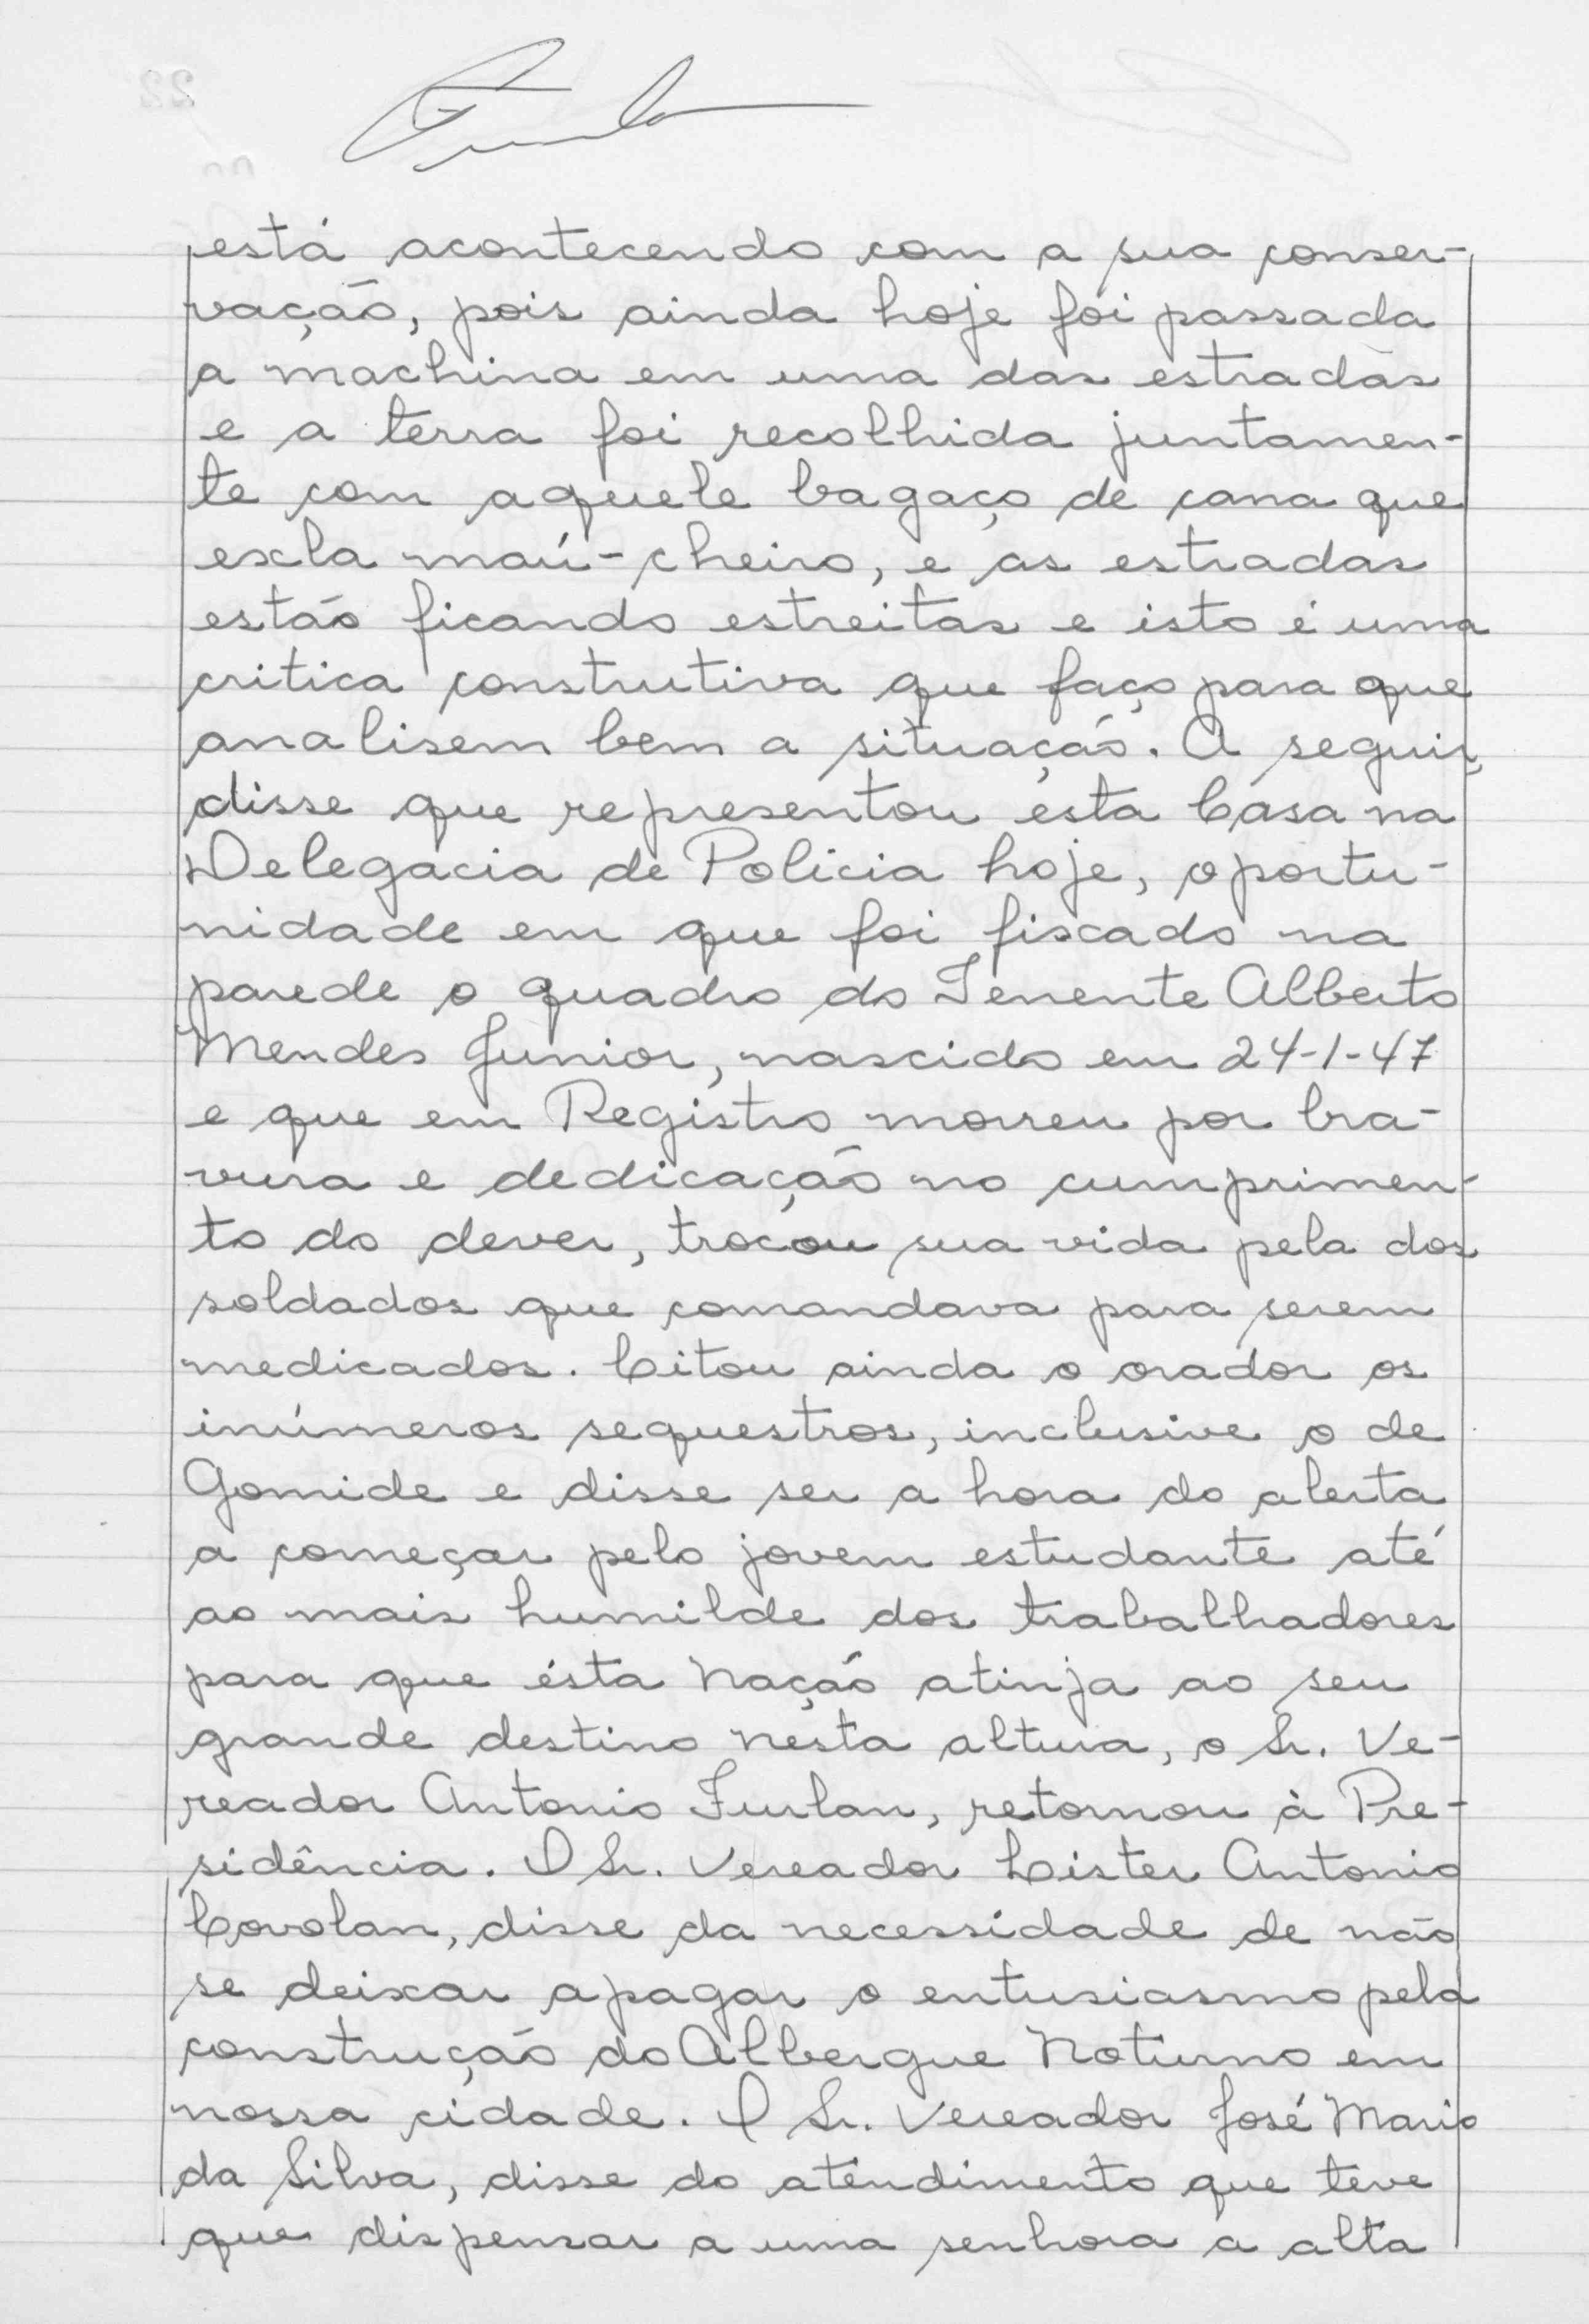 está acontecendo com a sua conser-
vação, pois ainda hoje foi passada
a machina em uma das estradas
e a terra foi recolhida juntamen-
te com aquele bagaço de cana que
exla maú-cheiro, e as estradas
estão ficando estreitas e isto é uma
critica construtiva que faço para que
analisem bem a situação. A seguir,
disse que representou ésta Casa na
Delegacia de Policia hoje, oportu-
nidade em que foi fixcado na
parede o quadro do Tenente Alberto
Mendes Junior, nascido em 24-1-47
e que em Registro morreu por bra-
vura e dedicação no cumprimen-
to do dever, trocou sua vida pela dos
soldados que comandava para serem
medicados. Citou ainda o orador os
inúmeros sequestros, inclusive o de
Gomide e disse ser a hora do alerta
a começar pelo jovem estudante até
ao mais humilde dos trabalhadores
para que ésta Nação atinja ao seu
grande destino nesta altura, o Sr. Ve-
reador Antonio Furlan, retornou à Pre-
sidência. O Sr. Vereador Lister Antonio
Covolan, disse da necessidade de não
se deixar apagar o entusiasmo pela
construção do Albergue Noturno em
nossa cidade. O Sr. Vereador José Mario
da Silva, disse do atendimento que teve
que dispensar a uma senhora a alta